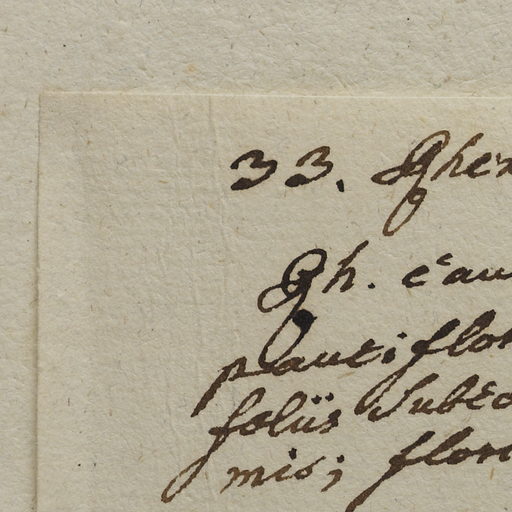 33. Gher
Gh. cau
pauciflor
foliis subco
mis; flor